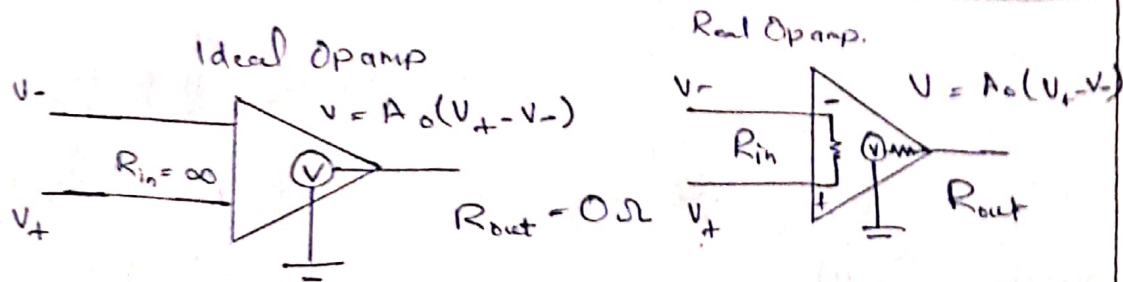 Ideal Opamp
V-
V = A₀(V₊-V₋)
Rin = ∞
V
V+
Rout = 0Ω
Real Opamp.
V-
V = A₀(V₊-V₋)
-
Rin
V
+
V+
Rout